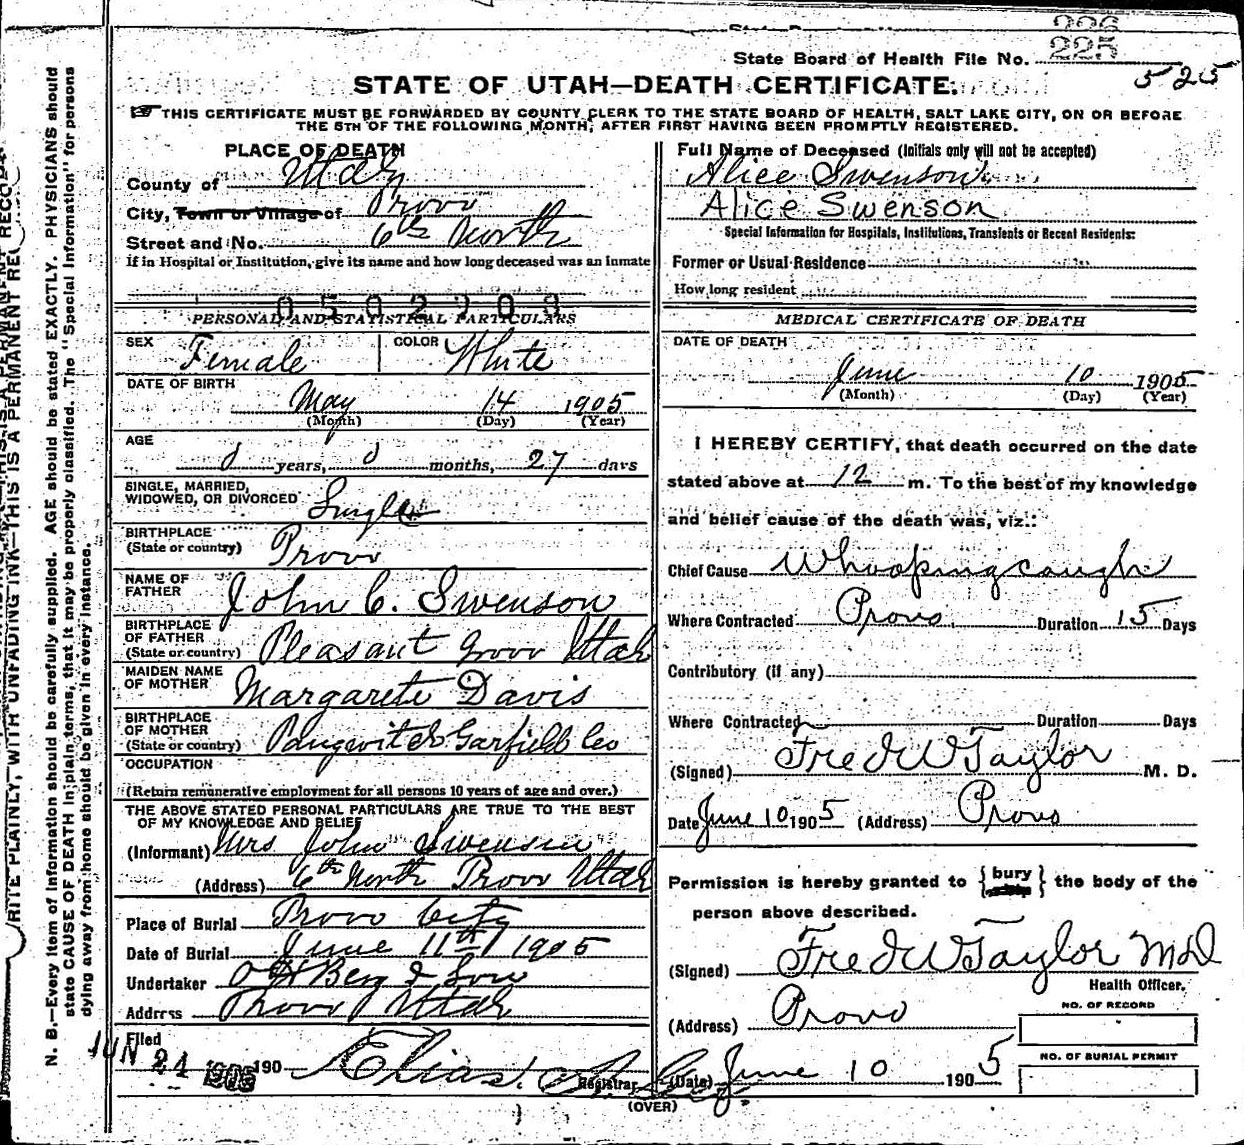 226
225
State Board of Health File No.
525
STATE OF UTAH—DEATH CERTIFICATE.
THIS CERTIFICATE MUST BE FORWARDED BY COUNTY CLERK TO THE STATE BOARD OF HEALTH, SALT LAKE CITY, ON OR BEFORE
THE 5TH OF THE FOLLOWING MONTH, AFTER FIRST HAVING BEEN PROMPTLY REGISTERED.
PLACE OF DEATH
County of Utah
City, Town or Village of Provo
Street and No. 6th North
If in Hospital or Institution, give its name and how long deceased was an inmate
0502203
PERSONAL AND STATISTICAL PARTICULARS
SEX Female COLOR White
DATE OF BIRTH
May 14 1905
(Month) (Day) (Year)
AGE
0 years, 0 months, 27 days
SINGLE, MARRIED,
WIDOWED, OR DIVORCED Single
BIRTHPLACE
(State or country) Provo
NAME OF
FATHER John C. Swenson
BIRTHPLACE
OF FATHER
(State or country) Pleasant Grove Utah
MAIDEN NAME
OF MOTHER Margarete Davis
BIRTHPLACE
OF MOTHER
(State or country) Panguitch Garfield Co
OCCUPATION
(Return remunerative employment for all persons 10 years of age and over.)
THE ABOVE STATED PERSONAL PARTICULARS ARE TRUE TO THE BEST
OF MY KNOWLEDGE AND BELIEF
(Informant) Mrs John Swenson
(Address) 6th North Provo Utah
Place of Burial Provo City
Date of Burial June 11th 1905
Undertaker O H Berg & Son
Address Provo Utah
Filed
JUN 24 1905 190
Elias
Registrar
(OVER)
Full Name of Deceased (Initials only will not be accepted)
Alice Swenson
Alice Swenson
Special Information for Hospitals, Institutions, Transients or Recent Residents:
Former or Usual Residence
How long resident
MEDICAL CERTIFICATE OF DEATH
DATE OF DEATH
June 10 1905
(Month) (Day) (Year)
I HEREBY CERTIFY, that death occurred on the date
stated above at 12 m. To the best of my knowledge
and belief cause of the death was, viz.:
Chief Cause Whooping cough
Where Contracted Provo. Duration 15 Days
Contributory (if any)
Where Contracted Duration Days
(Signed) Fred W Taylor M. D.
Date June 10 1905 (Address) Provo
Permission is hereby granted to {bury} the body of the
person above described.
(Signed) Fred W Taylor MD
Health Officer.
(Address) Provo
NO. OF RECORD
NO. OF BURIAL PERMIT
(Date) June 10 1905
N. B.—Every item of information should be carefully supplied. AGE should be stated EXACTLY. PHYSICIANS should
state CAUSE OF DEATH in plain terms, that it may be properly classified. The "Special Information" for persons
dying away from home should be given in every instance.
WRITE PLAINLY, WITH UNFADING INK—THIS IS A PERMANENT RECORD